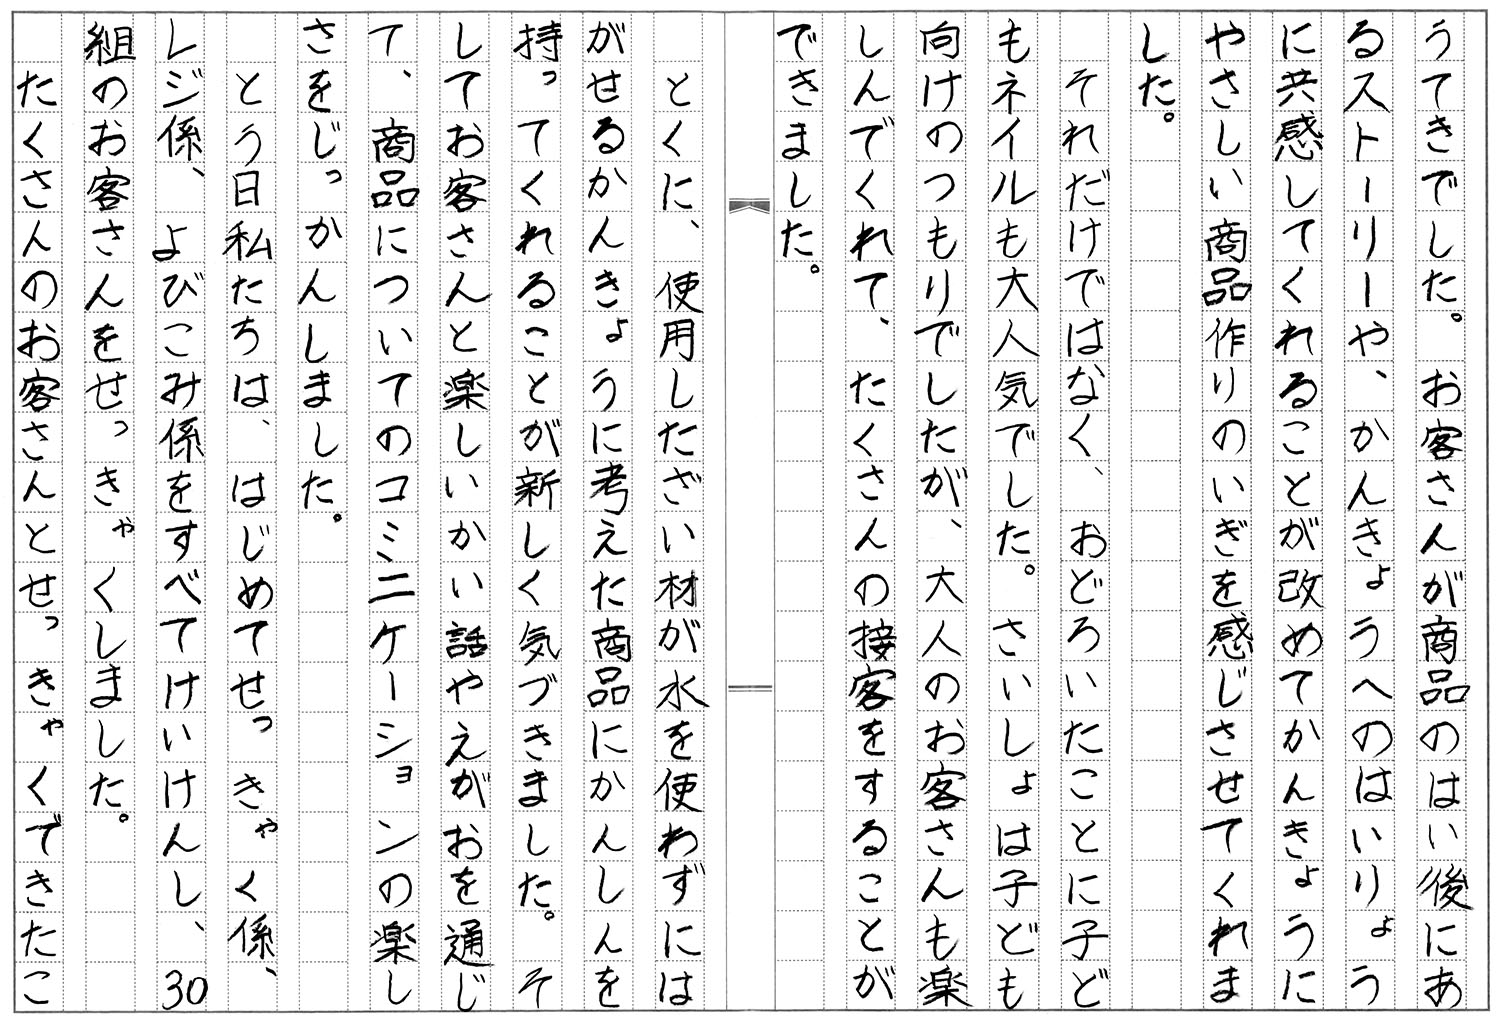 うてきでした。お客さんが商品のはい後にあ
るストーリーや、かんきょうへのはいりょう
に共感してくれることが改めてかんきょうに
やさしい商品作りのいぎを感じさせてくれま
した。
それだけではなく、おどろいたことに子ど
もネイルも大人気でした。さいしょは子ども
向けのつもりでしたが、大人のお客さんも楽
しんでくれて、たくさんの接客をすることが
できました。
とくに、使用したざい材が水を使わずには
がせるかんきょうに考えた商品にかんしんを
持ってくれることが新しく気づきました。そ
してお客さんと楽しいかい話やえがおを通じ
て、商品についてのコミニケーションの楽し
さをじっかんしました。
とう日私たちは、はじめてせっきゃく係、
レジ係、よびこみ係をすべてけいけんし、30
組のお客さんをせっきゃくしました。
たくさんのお客さんとせっきゃくできたこ